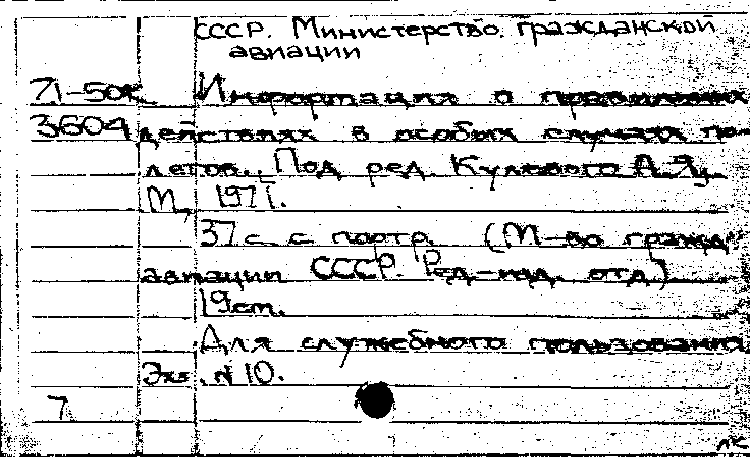 СССР. Министерство гражданской
авиации
71-50к Информация о правильных
3604 действиях в особых случаях по-
летов., Под ред. Кулевого А.Я.,
М, 1971.
37 с. с портр. (М-во гражд.
авиации СССР. Ред.-изд. отд.)
19 cm.
Для служебного пользования
Экз. N 10.
7
лк